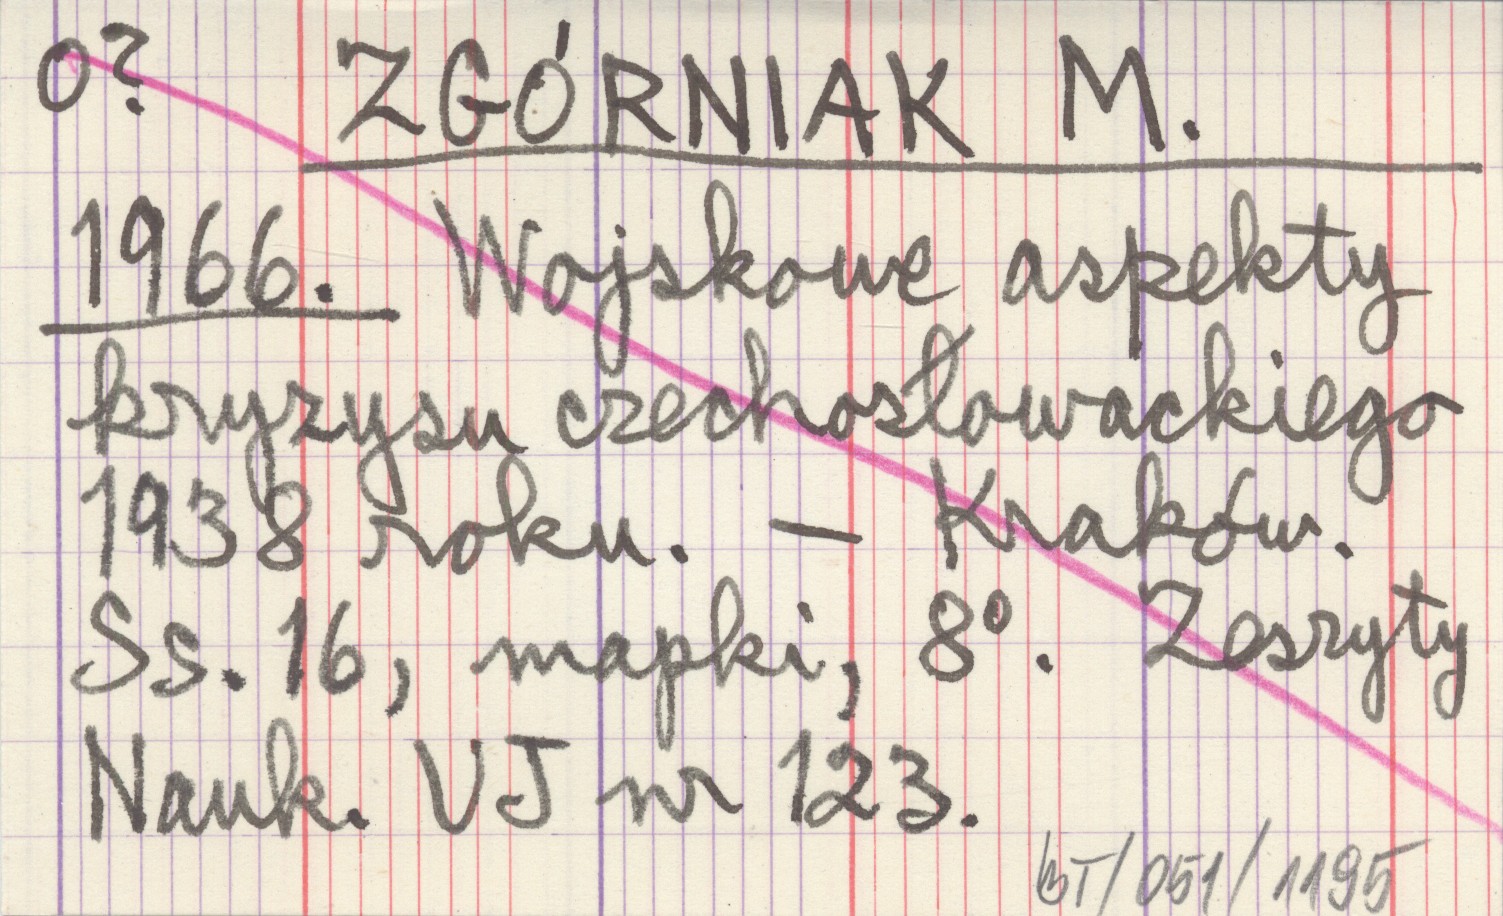 o? ZGÓRNIAK M.
1966. Wojskowe aspekty
kryzysu czechosłowackiego
1938 roku. — Kraków.
Ss. 16, mapki, 8º. Zeszyty
Nauk. UJ nr 123.
BT/051/1195